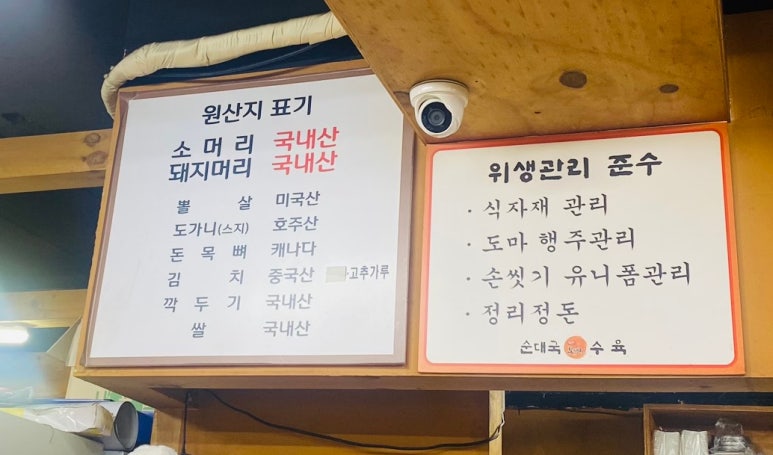 원산지 표기
소 머 리 국내산
돼지머리 국내산
뽈 살 미국산
도가니(스지) 호주산
돈 목 뼈 캐나다
김 치 중국산 고추가루
깍 두 기 국내산
쌀 국내산
위생관리 준수
· 식자재 관리
· 도마 행주관리
· 손씻기 유니폼관리
· 정리정돈
순대국 수육